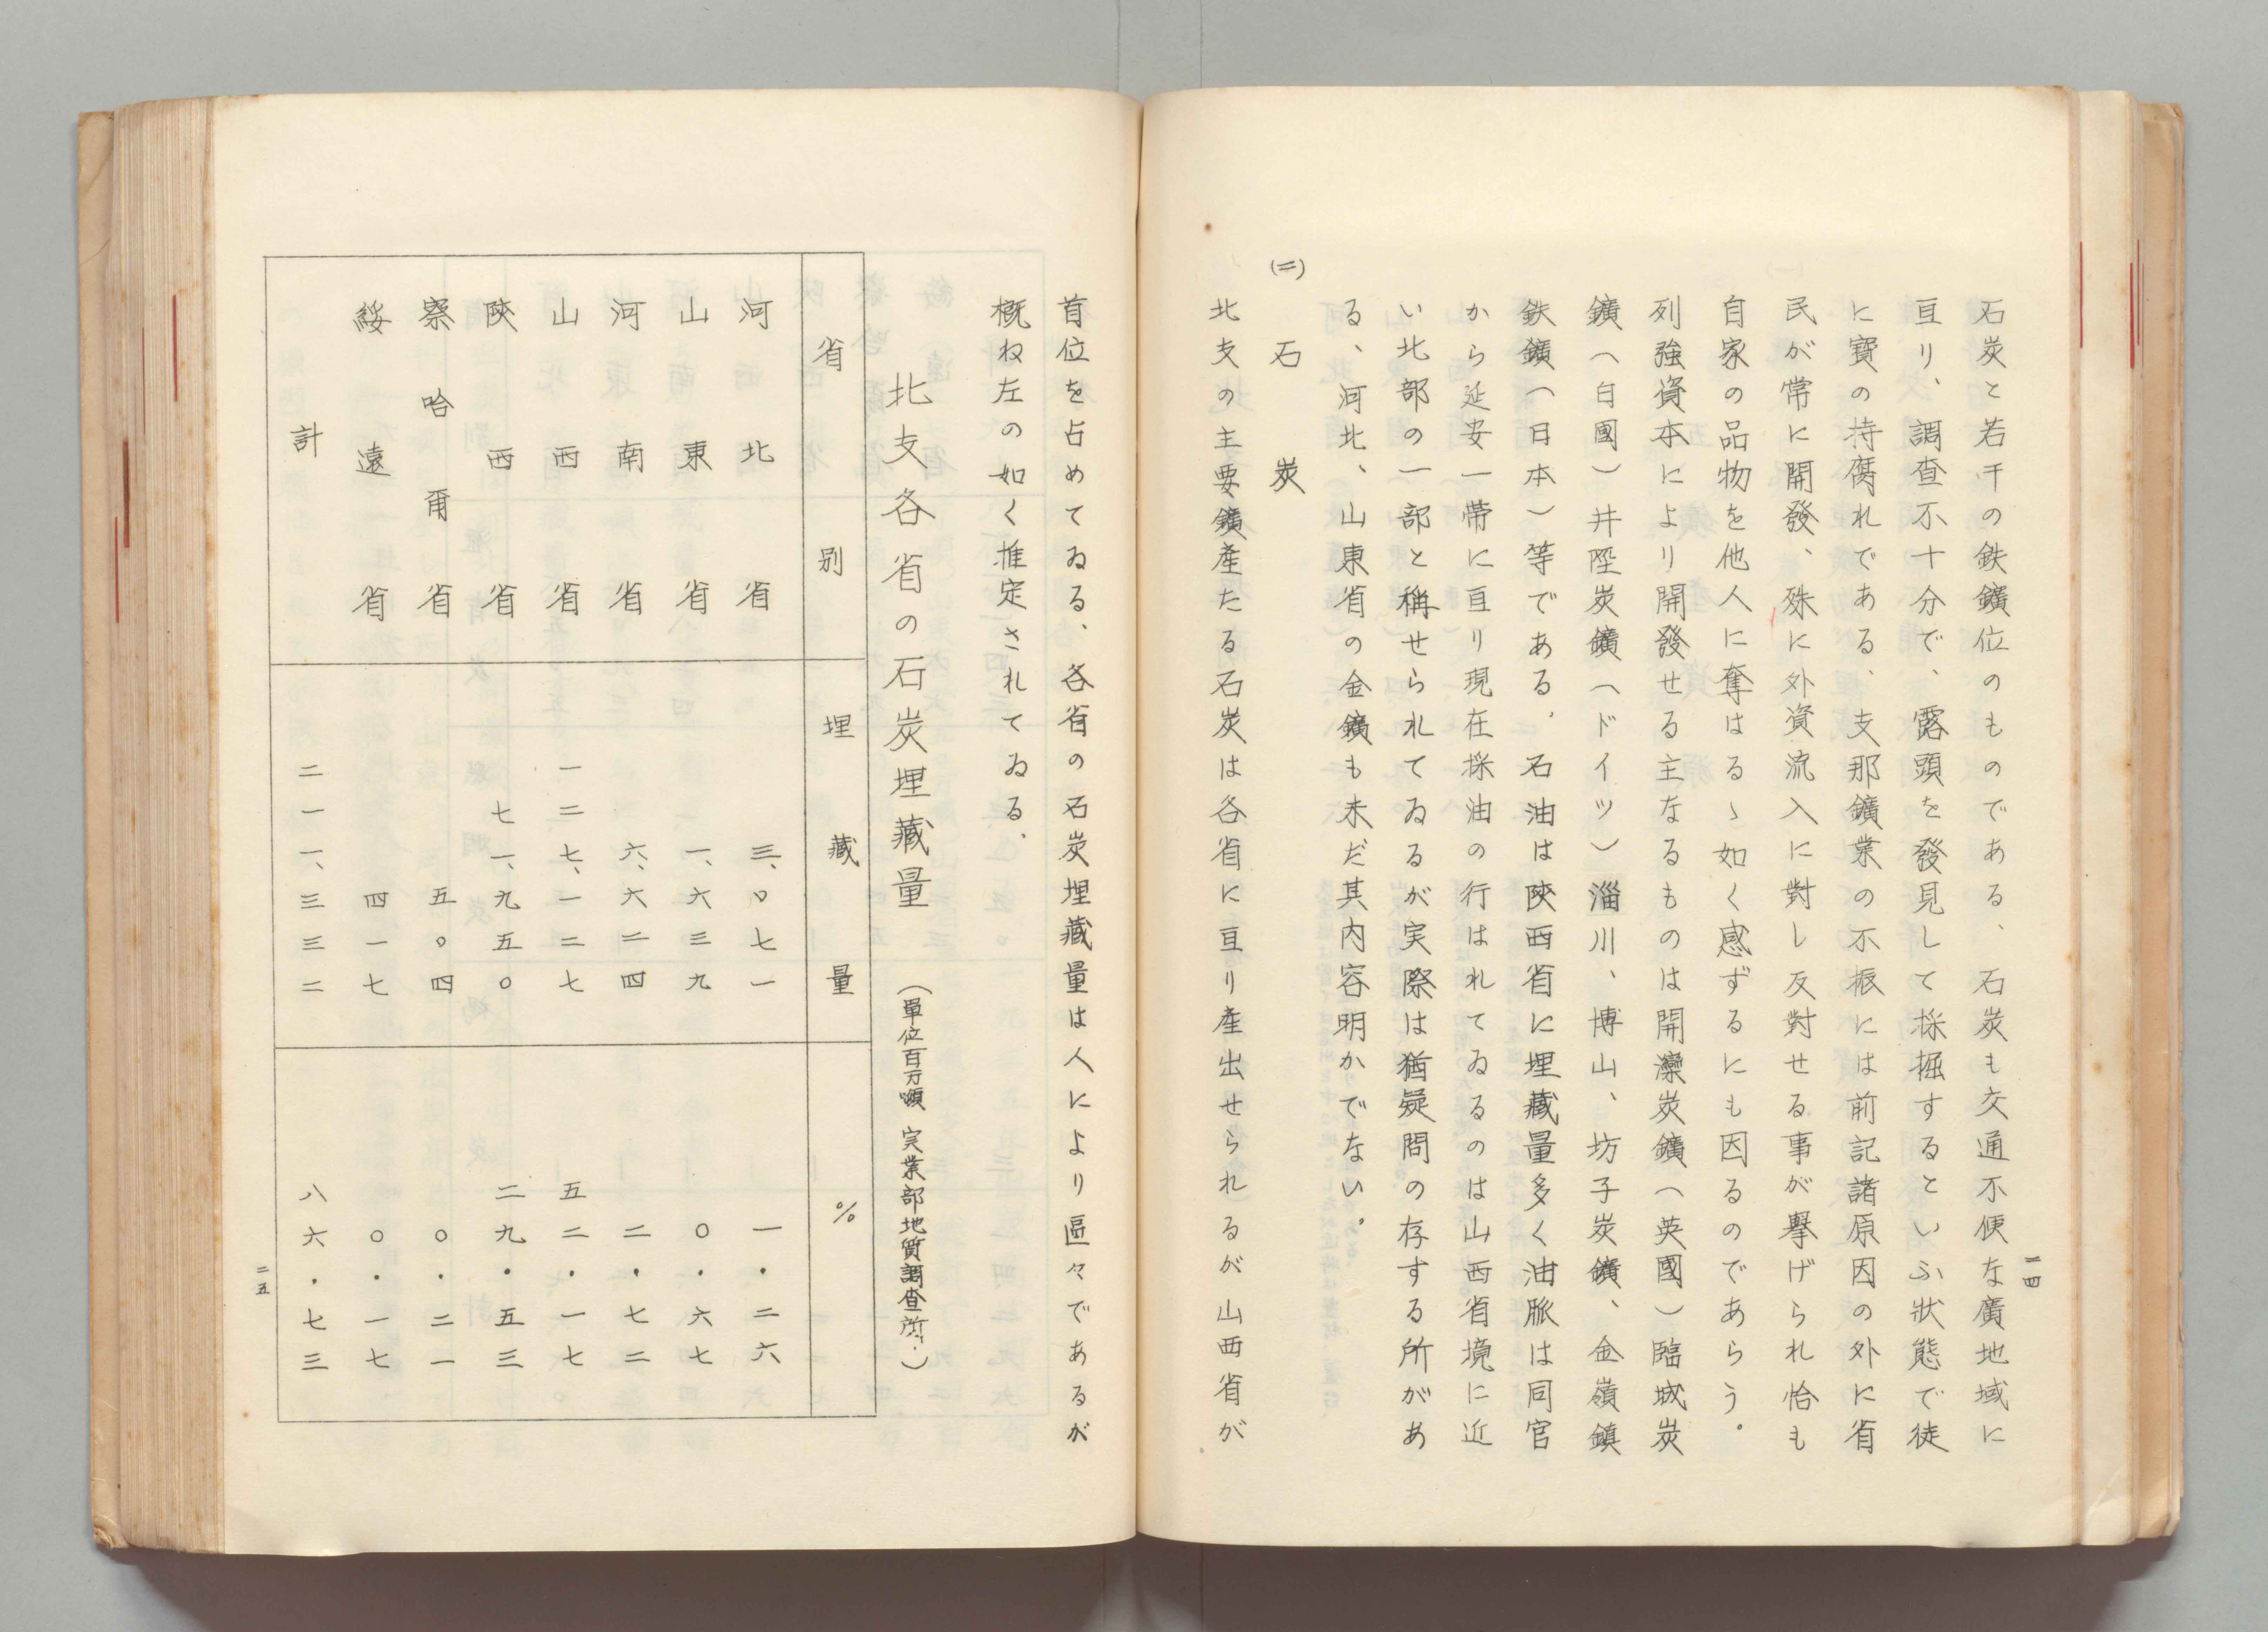 石炭と若干の鉄鑛位のものである、石炭も交通不便な廣地域に
亘り、調査不十分で、露頭を發見して採掘するといふ狀態で徒
に寶の持腐れである、支那鑛業の不振には前記諸原因の外に省
民が常に開發、殊に外資流入に對し反對せる事が擧げられ恰も
自家の品物を他人に奪はるゝ如く感ずるにも因るのであらう。
列強資本により開發せる主なるものは開灤炭鑛（英國）臨城炭
鑛（白國）井陘炭鑛（ドイツ）淄川、博山、坊子炭鑛、金嶺鎮
鉄鑛（日本）等である、石油は陝西省に埋藏量多く油脈は同官
から延安一帶に亘り現在採油の行はれてゐるのは山西省境に近
い北部の一部と稱せられてゐるが実際は猶疑問の存する所があ
る、河北、山東省の金鑛も未だ其内容明かでない。
(二)石炭
北支の主要鑛產たる石炭は各省に亘り產出せられるが山西省が
一四
首位を占めてゐる、各省の石炭埋藏量は人により區々であるが
概ね左の如く推定されてゐる、
北支各省の石炭埋藏量（單位百万噸 実業部地質調査所、）
省別 埋藏量 %
河北省 三、〇七一 一・二六
山東省 一、六三九 〇・六七
河南省 六、六二四 二・七二
山西省 一二七、一二七 五二・一七
陝西省 七一、九五〇 二九・五三
察哈爾省 五〇四 〇・二一
綏遠省 四一七 〇・一七
計 二一一、三三二 八六・七三
二五